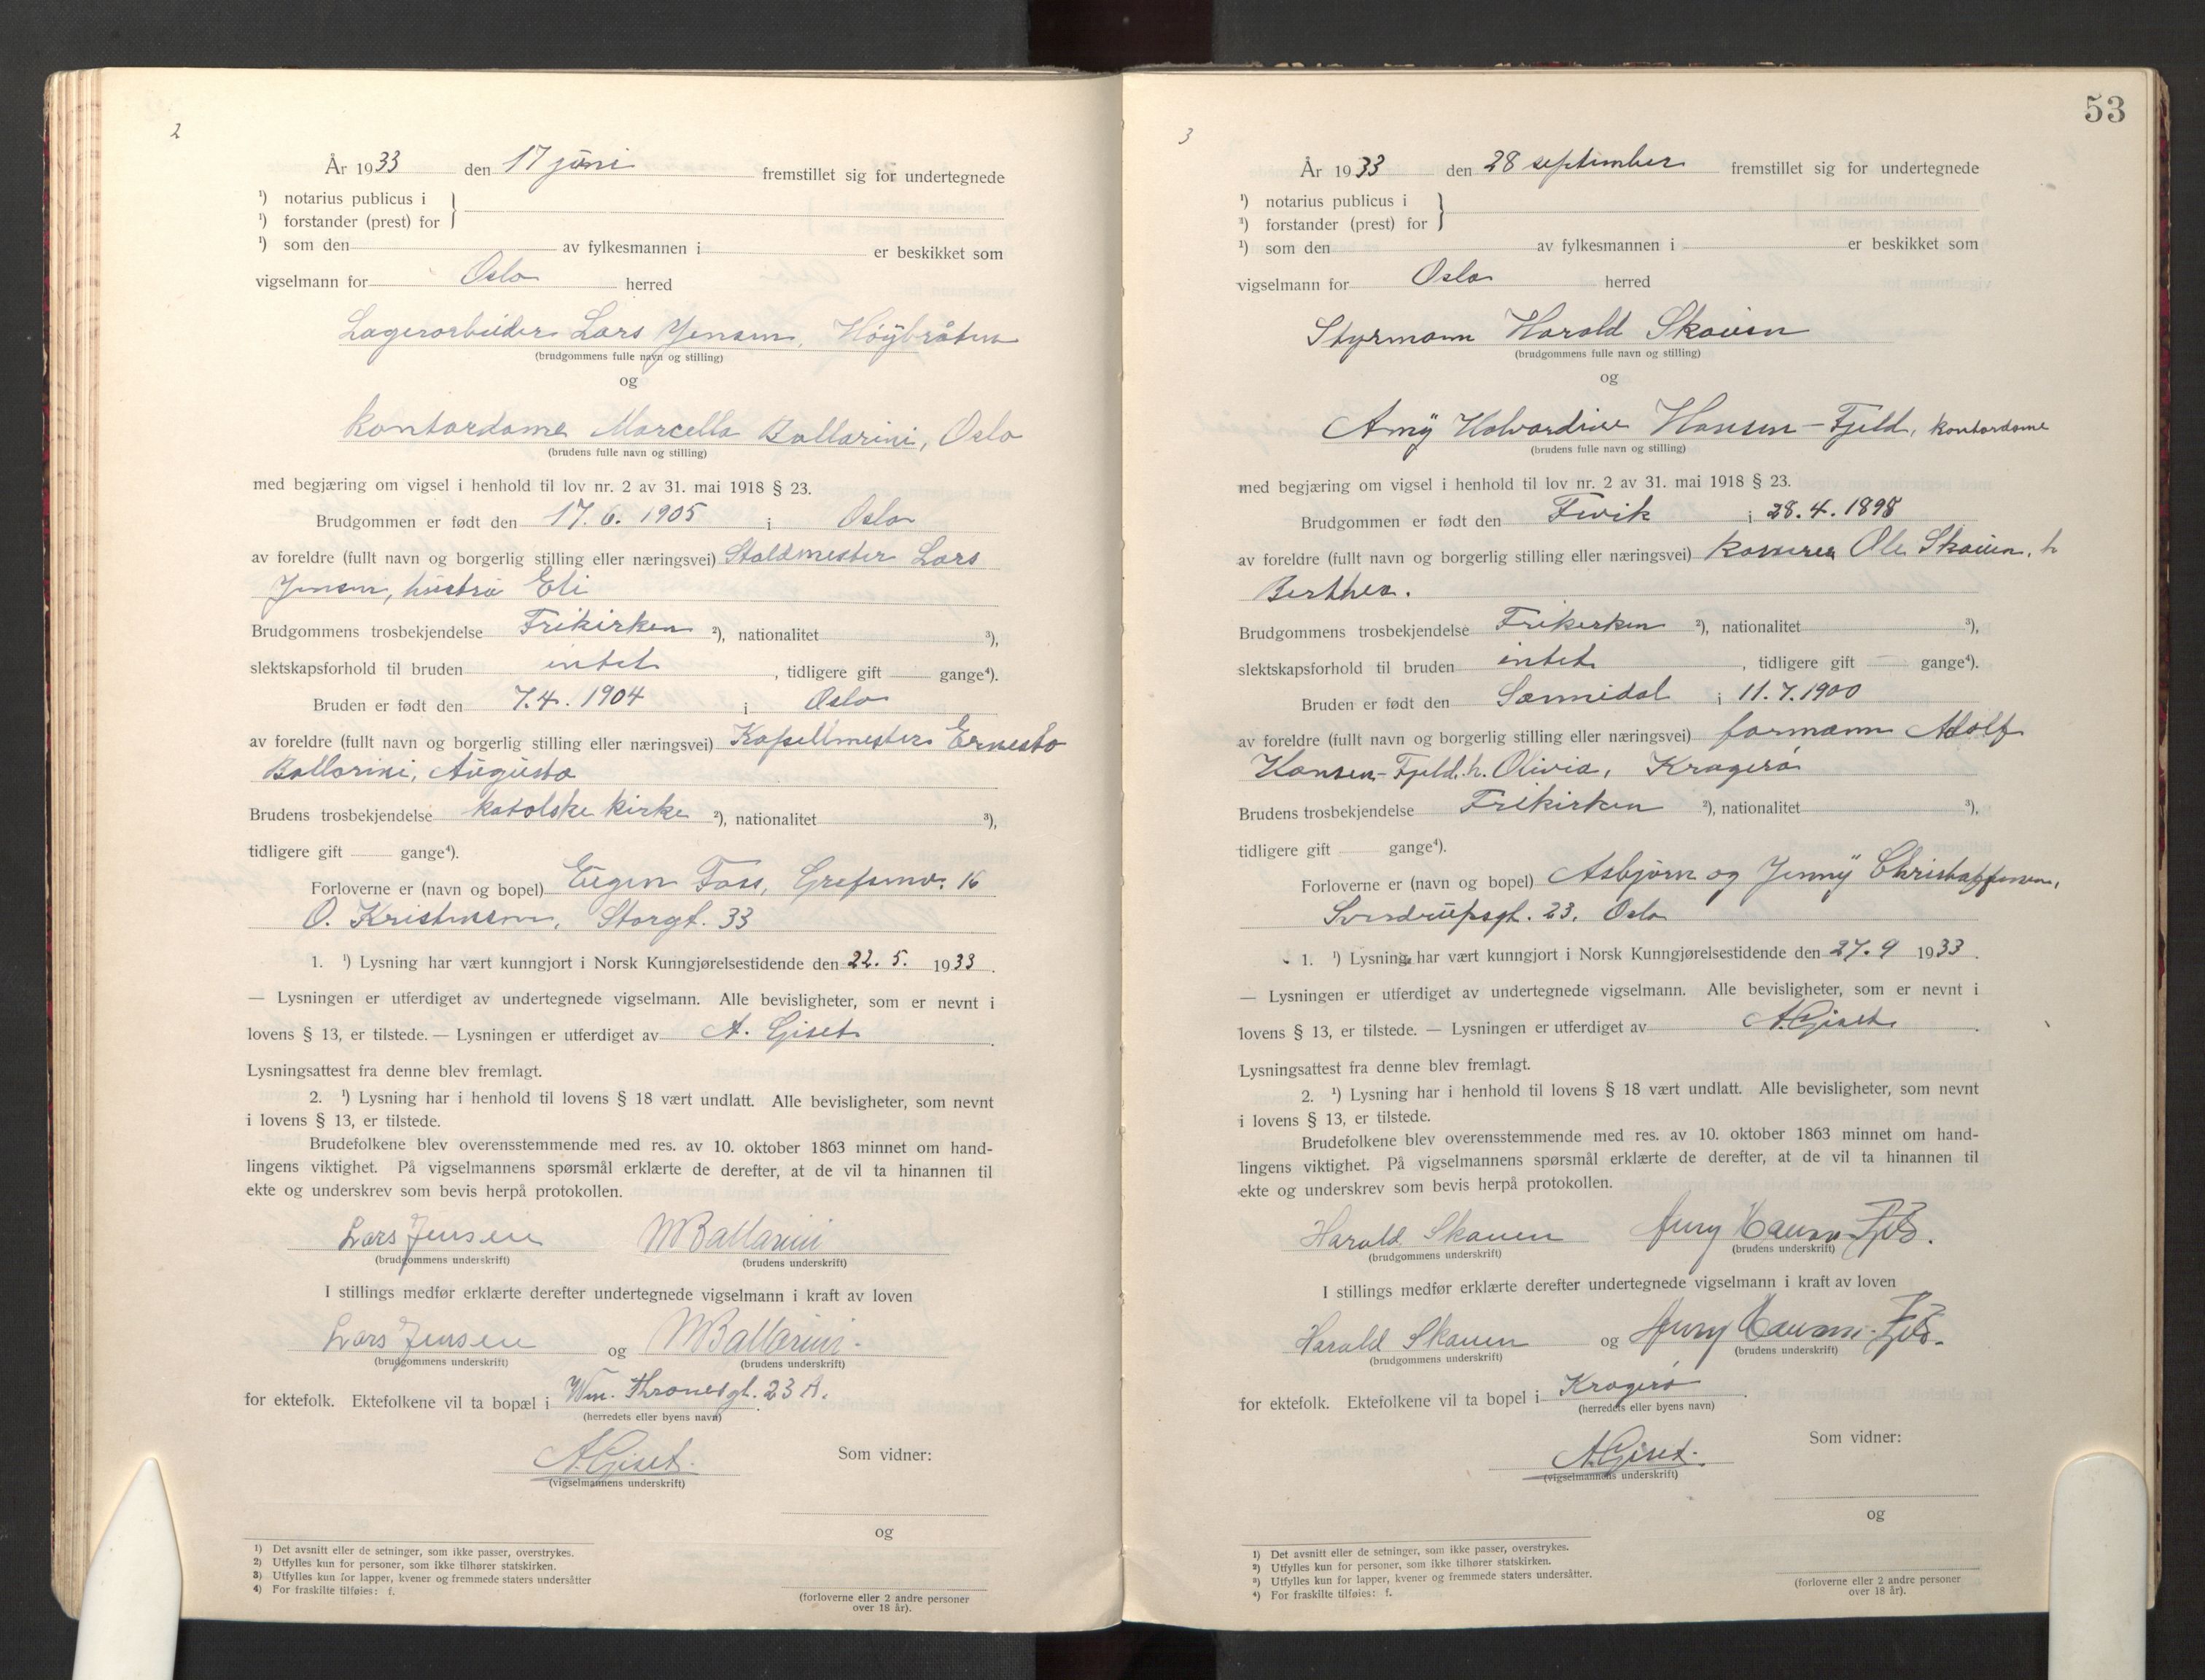 2
År 1933 den 17 juni fremstillet sig for undertegnede
¹) notarius publicus i
¹) forstander (prest) for
¹) som den av fylkesmannen i er beskikket som
vigselmann for Oslo herred
Lagerarbeider Lars Jensen, Høybråten
(brudgommens fulle navn og stilling)
og
kontordame Marcella Ballarini, Oslo
(brudens fulle navn og stilling)
med begjæring om vigsel i henhold til lov nr. 2 av 31. mai 1918 § 23.
Brudgommen er født den 17. 6. 1905 i Oslo
av foreldre (fullt navn og borgerlig stilling eller næringsvei) Staldmester Lars
Jensen, hustru Eli
Brudgommens trosbekjendelse Frikirken ²), nationalitet ³),
slektskapsforhold til bruden intet, tidligere gift — gange⁴).
Bruden er født den 7. 4. 1904 i Oslo
av foreldre (fullt navn og borgerlig stilling eller næringsvei) Kapellmester Ernesto
Ballarini, Augusta
Brudens trosbekjendelse katolske kirke ²), nationalitet ³),
tidligere gift — gange⁴).
Forloverne er (navn og bopel) Eugen Foss, Grefsenv. 16
O. Kristensen, Storgt. 33
1. ¹) Lysning har vært kunngjort i Norsk Kunngjørelsestidende den 22. 5. 1933.
— Lysningen er utferdiget av undertegnede vigselmann. Alle bevisligheter, som er nevnt i
lovens § 13, er tilstede. — Lysningen er utferdiget av A. Giset.
Lysningsattest fra denne blev fremlagt.
2. ¹) Lysning har i henhold til lovens § 18 vært undlatt. Alle bevisligheter, som nevnt
i lovens § 13, er tilstede.
Brudefolkene blev overensstemmende med res. av 10. oktober 1863 minnet om hand-
lingens viktighet. På vigselmannens spørsmål erklærte de derefter, at de vil ta hinannen til
ekte og underskrev som bevis herpå protokollen.
Lars Jensen M Ballarini
(brudgommens underskrift) (brudens underskrift)
I stillings medfør erklærte derefter undertegnede vigselmann i kraft av loven
Lars Jensen og M Ballarini.
(brudgommens underskrift) (brudens underskrift)
for ektefolk. Ektefolkene vil ta bopæl i Wm. Thranesgt. 23 A.
(herredets eller byens navn)
A. Giset. Som vidner:
(vigselmannens underskrift)
og
(forloverne eller 2 andre personer
over 18 år).
1) Det avsnitt eller de setninger, som ikke passer, overstrykes.
2) Utfylles kun for personer, som ikke tilhører statskirken.
3) Utfylles kun for lapper, kvener og fremmede staters undersåtter
4) For fraskilte tilføies: f.
53
3
År 1933 den 28 september fremstillet sig for undertegnede
¹) notarius publicus i
¹) forstander (prest) for
¹) som den av fylkesmannen i er beskikket som
vigselmann for Oslo herred
Styrmann Harald Skauen
(brudgommens fulle navn og stilling)
og
Amy Halvardine Hansen-Fjeld, kontordame
(brudens fulle navn og stilling)
med begjæring om vigsel i henhold til lov nr. 2 av 31. mai 1918 § 23.
Brudgommen er født den Fevik i 28. 4. 1898
av foreldre (fullt navn og borgerlig stilling eller næringsvei) kasserer Ole Skauen, h
Berthea.
Brudgommens trosbekjendelse Frikirken ²), nationalitet ³),
slektskapsforhold til bruden intet, tidligere gift — gange⁴).
Bruden er født den Sannidal i 11. 7. 1900
av foreldre (fullt navn og borgerlig stilling eller næringsvei) formann Adolf
Hansen-Fjeld. h. Olivia, Kragerø
Brudens trosbekjendelse Frikirken ²), nationalitet ³),
tidligere gift — gange⁴).
Forloverne er (navn og bopel) Asbjørn og Jenny Christoffersen,
Sverdrupsgt. 23. Oslo
1. ¹) Lysning har vært kunngjort i Norsk Kunngjørelsestidende den 27. 9 1933.
— Lysningen er utferdiget av undertegnede vigselmann. Alle bevisligheter, som er nevnt i
lovens § 13, er tilstede. — Lysningen er utferdiget av A. Giset.
Lysningsattest fra denne blev fremlagt.
2. ¹) Lysning har i henhold til lovens § 18 vært undlatt. Alle bevisligheter, som nevnt
i lovens § 13, er tilstede.
Brudefolkene blev overensstemmende med res. av 10. oktober 1863 minnet om hand-
lingens viktighet. På vigselmannens spørsmål erklærte de derefter, at de vil ta hinannen til
ekte og underskrev som bevis herpå protokollen.
Harald Skauen Amy Hansen-Fjeld.
(brudgommens underskrift) (brudens underskrift)
I stillings medfør erklærte derefter undertegnede vigselmann i kraft av loven
Harald Skauen og Amy Hansen-Fjeld.
(brudgommens underskrift) (brudens underskrift)
for ektefolk. Ektefolkene vil ta bopel i Kragerø.
(herredets eller byens navn)
A. Giset. Som vidner:
(vigselmannens underskrift)
og
(forloverne eller 2 andre personer
over 18 år).
1) Det avsnitt eller de setninger, som ikke passer, overstrykes.
2) Utfylles kun for personer, som ikke tilhører statskirken.
3) Utfylles kun for lapper, kvener og fremmede staters undersåtter.
4) For fraskilte tilføies: f.